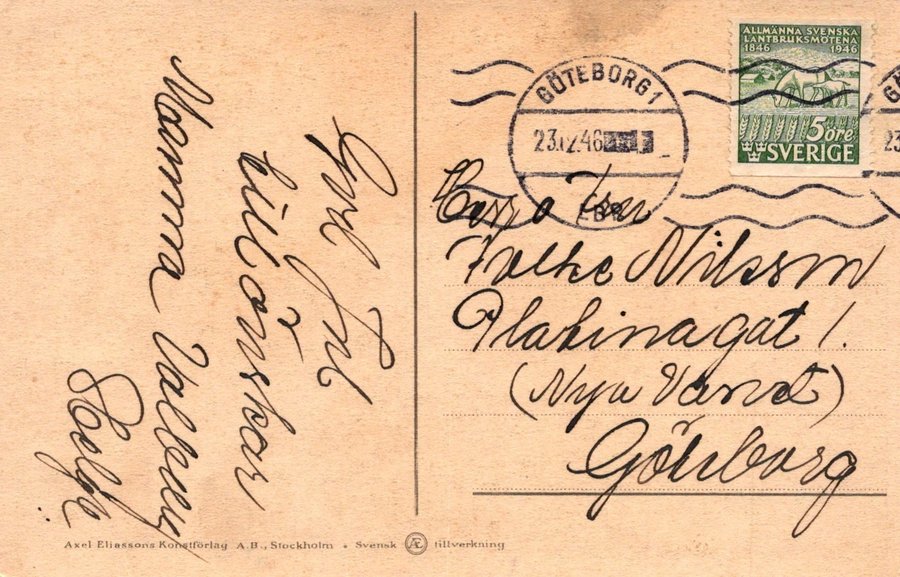 God Jul
tillönskar
Mamma Valborg
ALLMÄNNA SVENSKA
LANTBRUKSMÖTENA
1846 1946
5öre
SVERIGE
GÖTEBORG 1
23.12.46
LBR
GÖ
23
Herr o Fru
Folke Nilsson
Platinagat 1.
(Nya Varvet)
Göteborg
Axel Eliassons Konstförlag A.B., Stockholm • Svensk Æ tillverkning